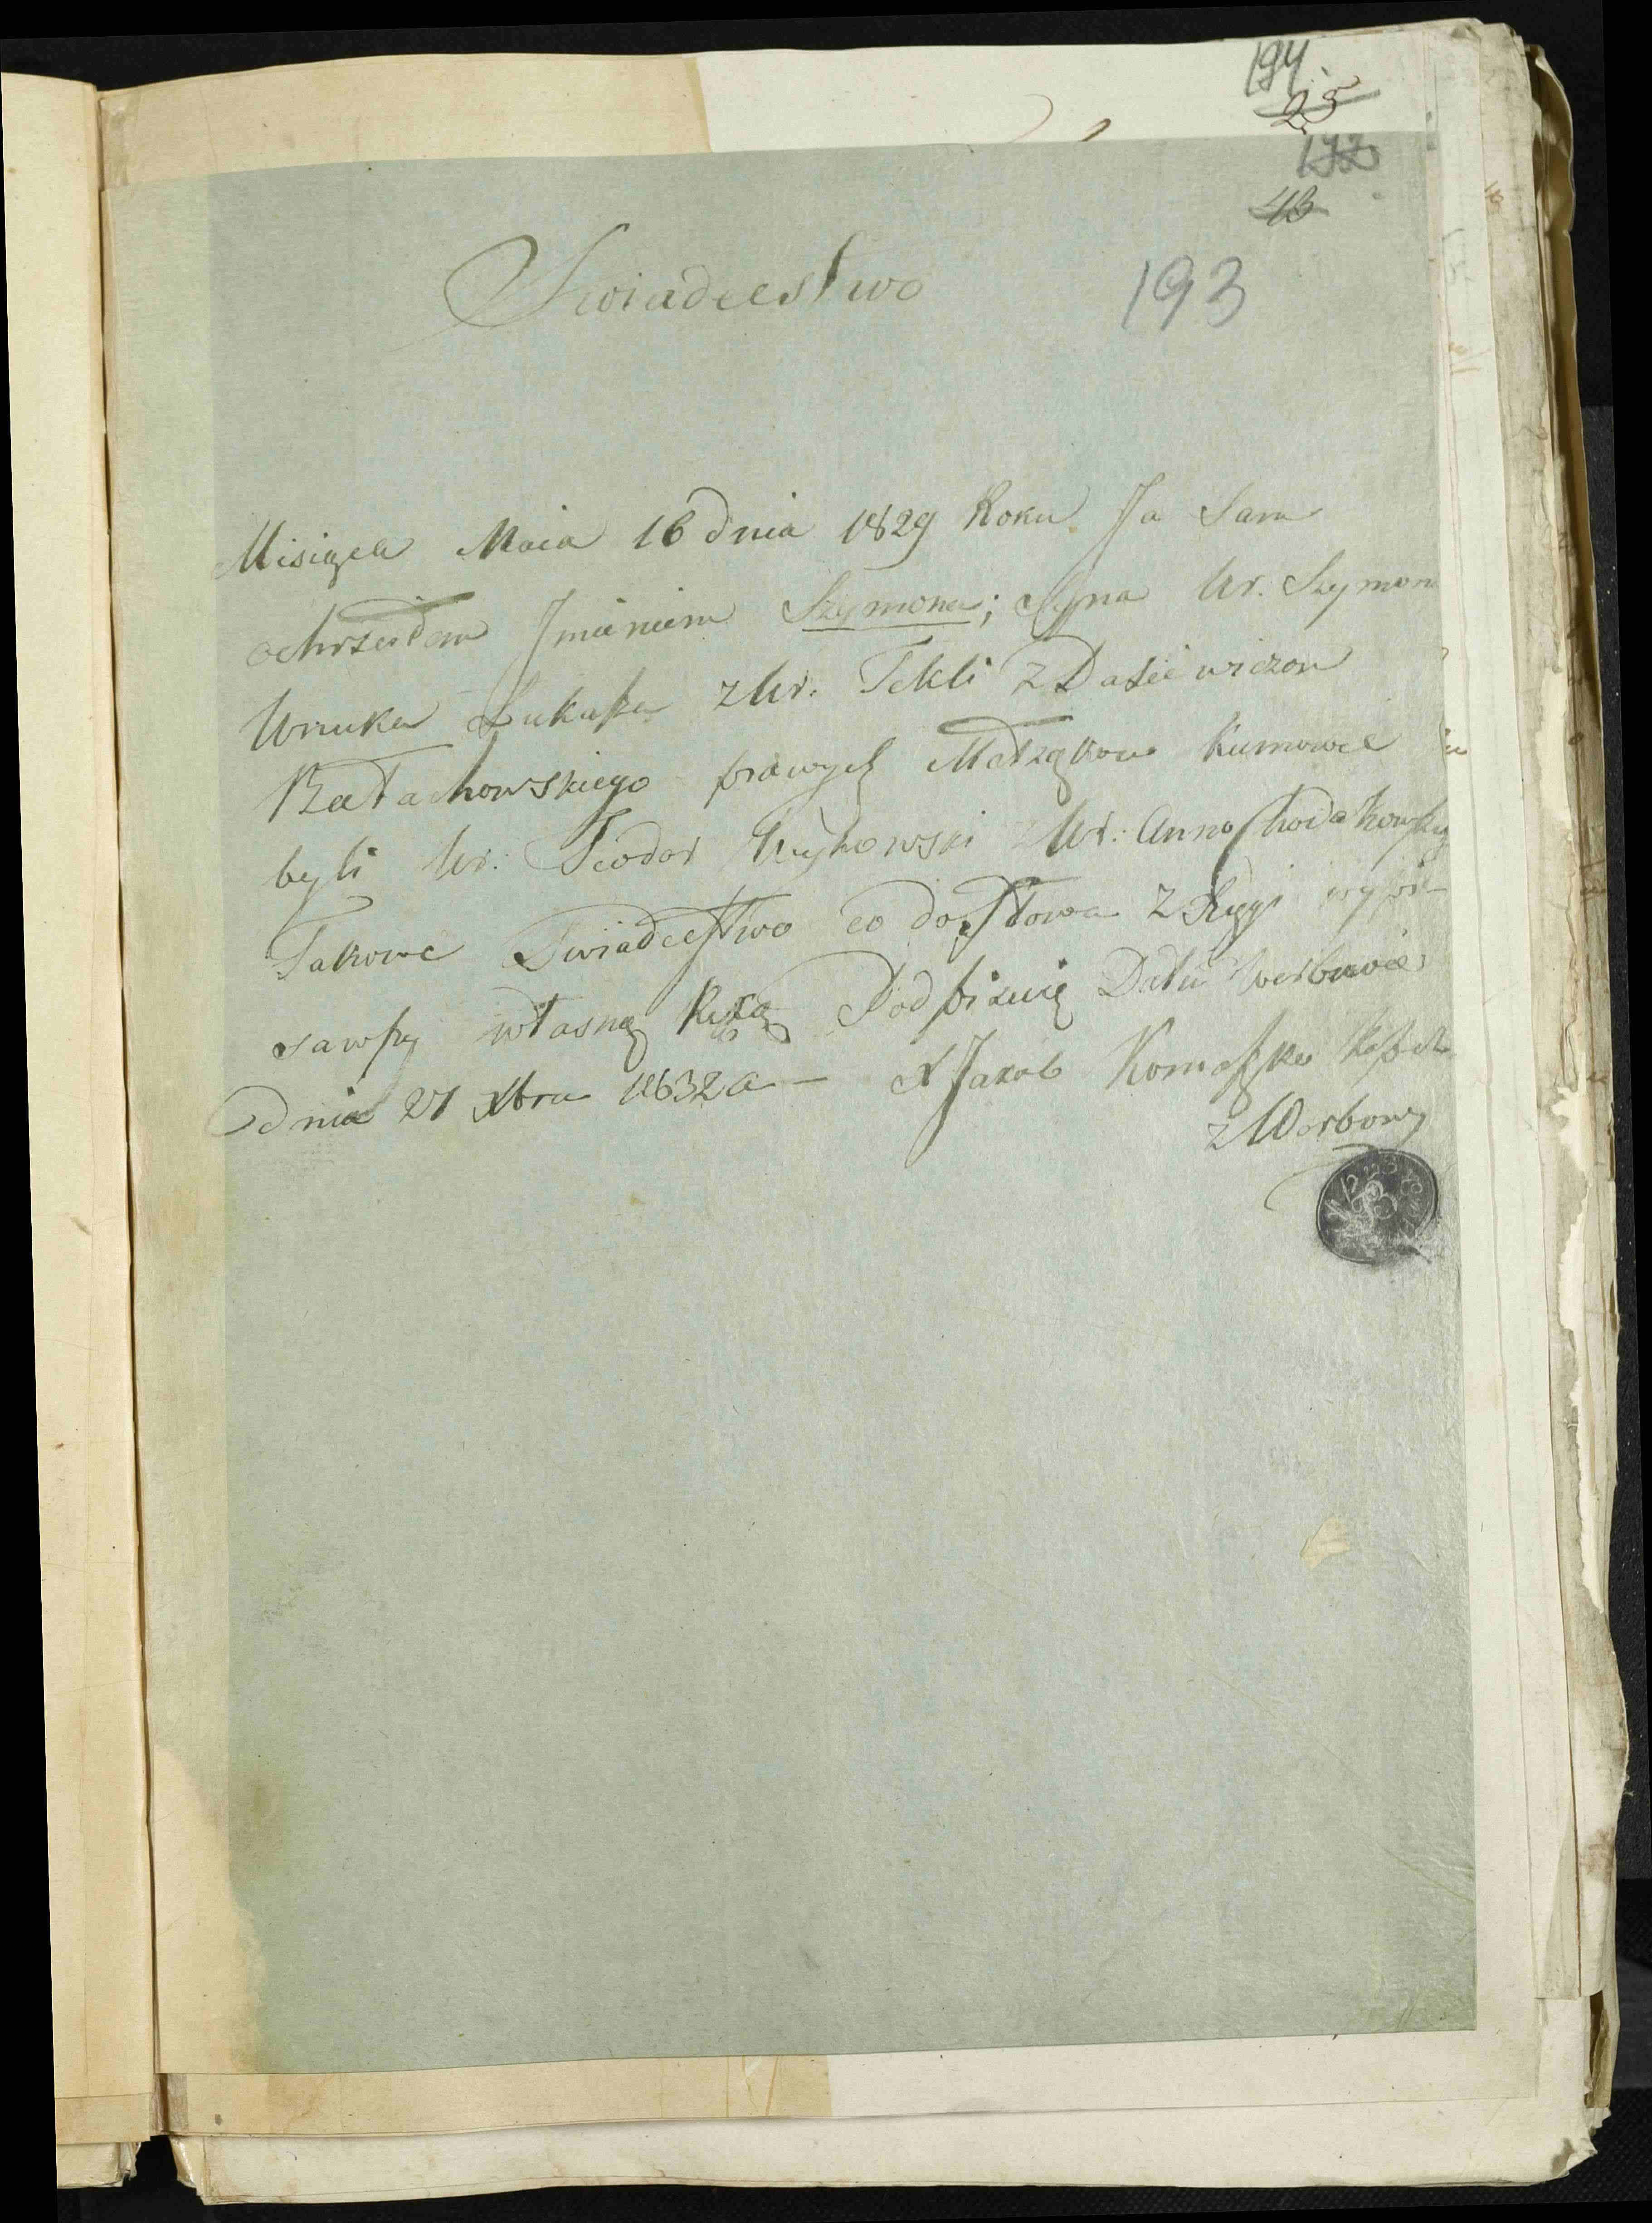 194
25
177
43
Swiadectwo
193
Misiąca Maia 16 dnia 1829 Roku Ja Sam
ochrzciłem Jmieniem Szymona; Syna Ur. Szymona
Wnuka Łukasza z Ur. Tekli z Dasiewiczow
Bałachowskiego prawych Małżąkow kumowie
byli Ur. Teodor Wyhowski z Ur: Anno Chodakowską
Takowe Swiadectwo co do słowa z Xięgi wypi-
sawszy własną Ręką Podpisuię Datu Werbowie
dnia 27 Xbra 1832 a — X Jakob
z Werbowy